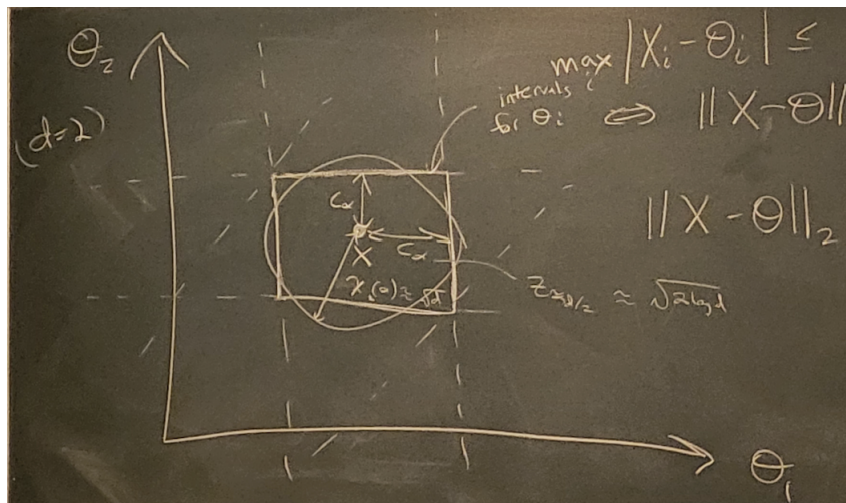 θ₂
(d=2)
max |Xᵢ-θᵢ| ≤
i
intervals
for θᵢ ⇔ ||X-θ||
||X - θ||₂
C_α
C_α
X
≈ √d
≈ √2 log d
θ₁